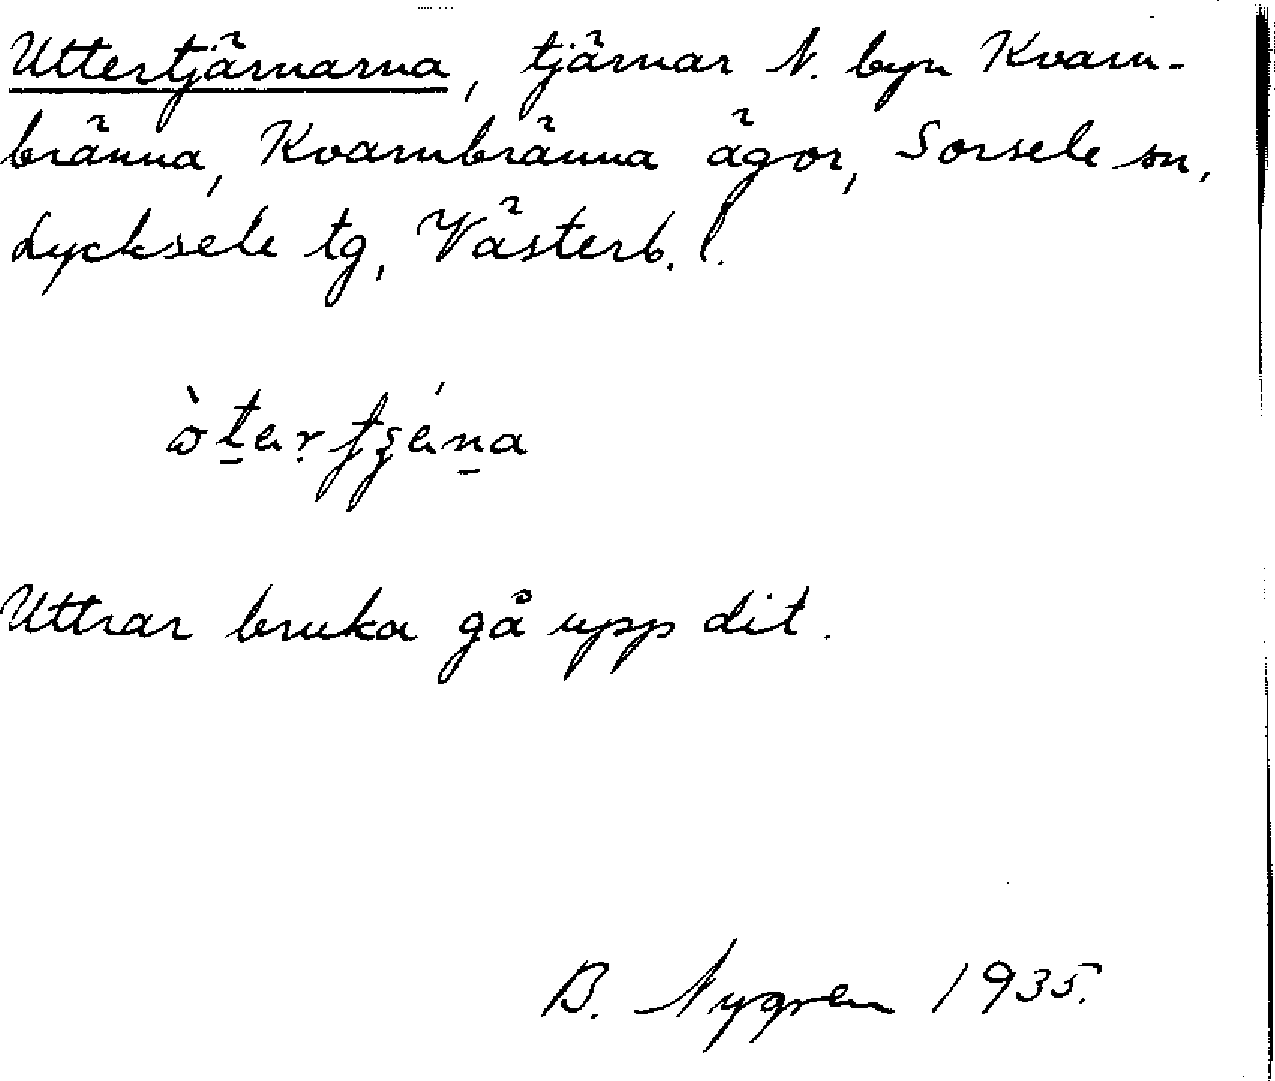 Uttertjärnarna, tjärnar N. byn Kvarn-
bränna, Kvarnbränna ägor, Sorsele sn,
Lycksele tg, Västerb. l.
Uttrar bruka gå upp dit.
B. Nygren 1935.